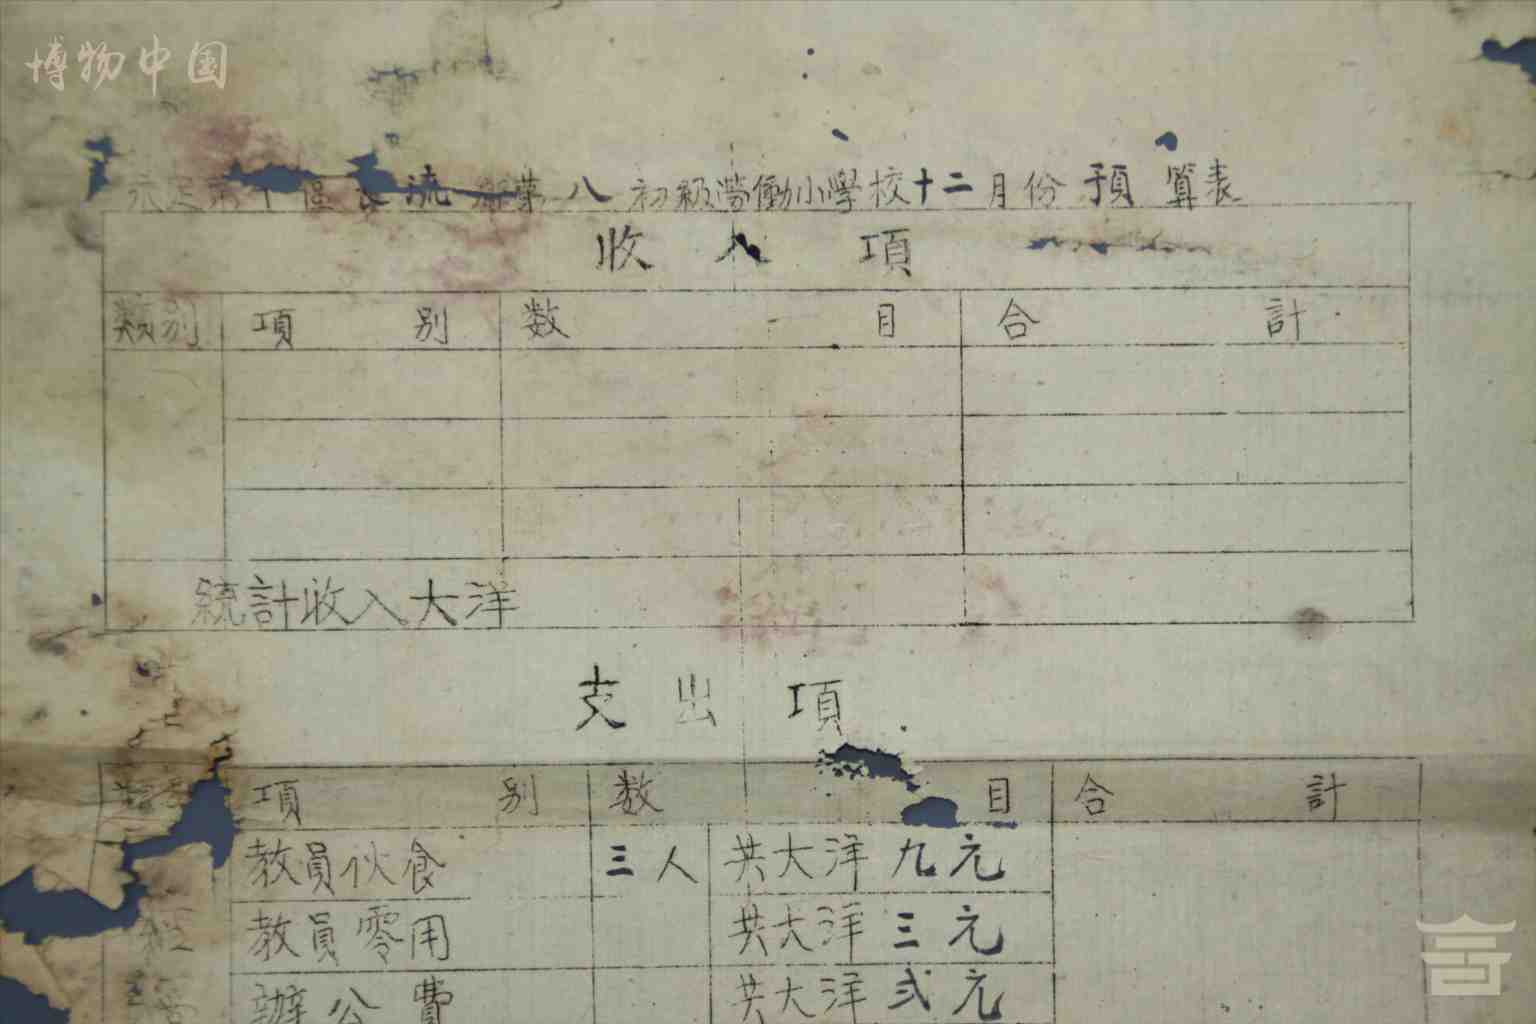 博物中国
永定第十區 流 第八初級勞働小學校十二月份預算表
收入項
類別 項別 数目 合計
統計收入大洋
支出項
項別 数目 合計
教員伙食 三人 共大洋九元
教員零用 共大洋三元
辦公費 共大洋弍元